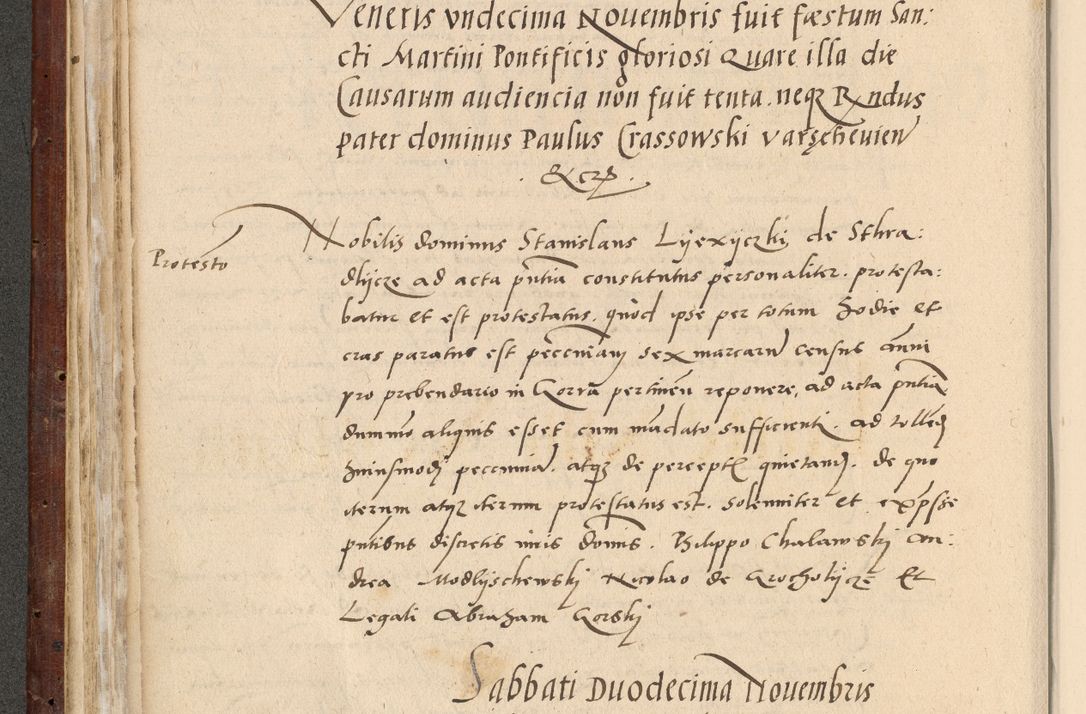 Veneris vndecima Nouembris fuit fæstum San:
cti Martini Pontificis gloriosi Quare illa die
Causarum audiencia nõn fuit tenta. neq3 Rndus
pater dominus Paulus Crassowski varschevien
Nobilis dominus Stanislaus Lyexyczkij de Sthra:
Protesto
dlijcze ad acta pñtia constitutus personaliter. protesta:
batur et est protestatus. quod ipse per totum hodie et
cras paratus est peccuniam sex marcarum census anni
pro prebendario in Gorra pertineñ reponere, ad acta pñtia
dummo aliquis esset cum mãdato sufficienti. ad tolleñ
huiusmodi peccuniã. atq3 de percept quietand. de quo
iterum atq3 iterum protestatus est. solenniter et expsse
pntibus discretis uiris domis. Philippo Chalawskj An:
drea Modlijschewskj Nicolao de Grocholijcze Et
Legati Abraham Gorskj
Sabbati Duodecima Nouembris